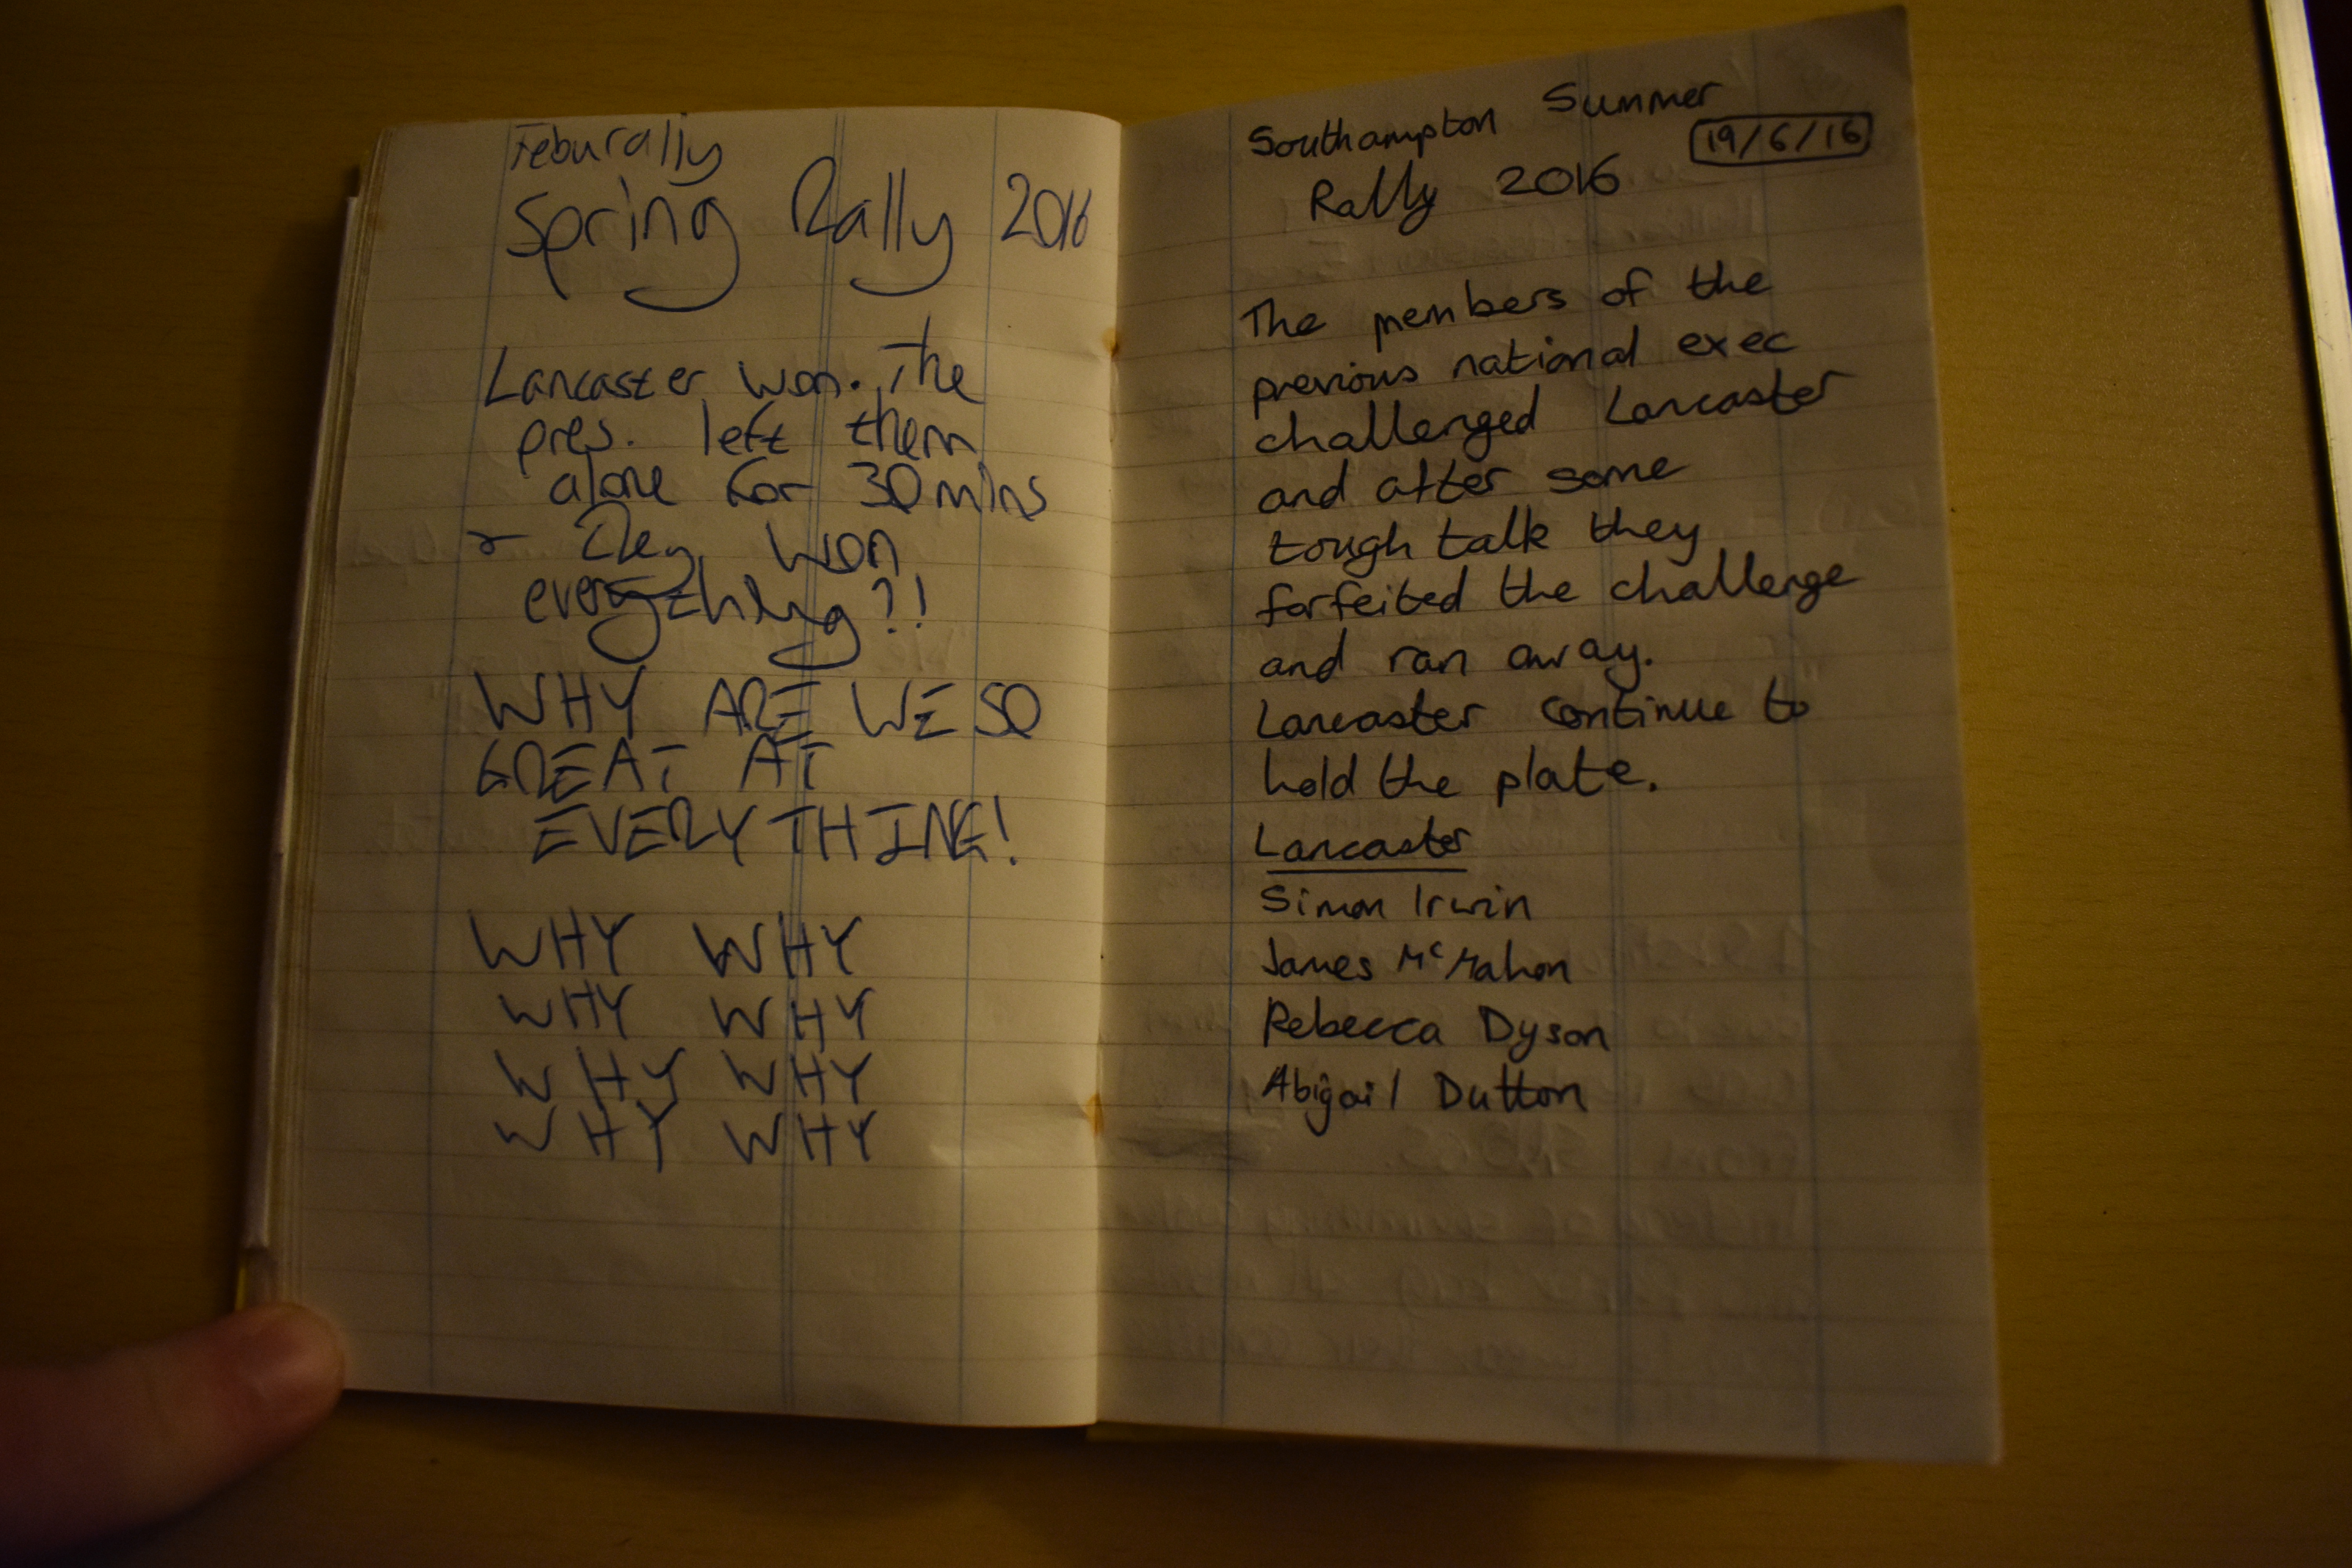 Feburally
Spring Rally 2016
Lancaster won. The
pres. left them
alone for 30 mins
& They won
everything?!
WHY ARE WE SO
GREAT AT
EVERYTHING!
WHY WHY
WHY WHY
WHY WHY
WHY WHY
Southampton Summer
Rally 2016 19/6/16
The members of the
previous national exec
challenged Lancaster
and after some
tough talk they
forfeited the challenge
and ran away.
Lancaster continue to
hold the plate.
Lancaster
Simon Irwin
James McMahon
Rebecca Dyson
Abigail Dutton